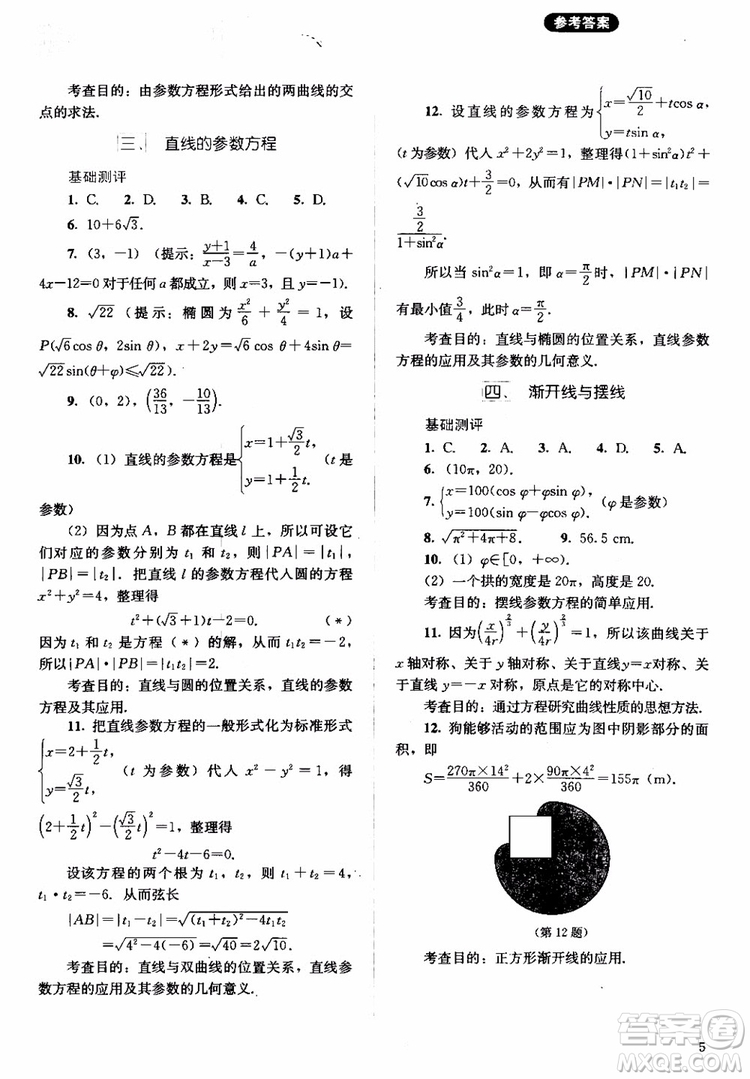 参考答案
考查目的：由参数方程形式给出的两曲线的交
点的求法.
三、直线的参数方程
基础测评
1. C. 2. D. 3. B. 4. C. 5. D.
6. 10+6√3.
7. (3, -1) (提示：(y+1)/(x-3)=4/a, -(y+1)a+
4x-12=0 对于任何 a 都成立，则 x=3，且 y=-1).
8. √22 (提示：椭圆为 x²/6+y²/4=1，设
P(√6cos θ, 2sin θ), x+2y=√6cos θ+4sin θ=
√22sin(θ+φ)≤√22).
9. (0, 2), (36/13, -10/13).
10. (1) 直线的参数方程是{x=1+(√3/2)t, y=1+(1/2)t, (t 是
参数)
(2) 因为点 A，B 都在直线 l 上，所以可设它
们对应的参数为 t₁ 和 t₂，则|PA|=|t₁|,
|PB|=|t₂|. 把直线 l 的参数方程代人圆的方程
x²+y²=4，整理得
t²+(√3+1)t-2=0. (*)
因为 t₁ 和 t₂ 是方程(*)的解，从而 t₁t₂=-2,
所以|PA|·|PB|=|t₁t₂|=2.
考查目的：直线与圆的位置关系，直线的参数
方程及其应用.
11. 把直线参数方程的一般形式化为标准形式
{x=2+(1/2)t, y=(√3/2)t, (t 为参数) 代人 x²-y²=1，得
(2+(1/2)t)²-((√3/2)t)²=1，整理得
t²-4t-6=0.
设该方程的两个根为 t₁，t₂，则 t₁+t₂=4,
t₁·t₂=-6. 从而弦长
|AB|=|t₁-t₂|=√((t₁+t₂)²-4t₁t₂)
=√(4²-4(-6))=√40=2√10.
考查目的：直线与双曲线的位置关系，直线参
数方程的应用及其参数的几何意义.
12. 设直线的参数方程为{x=√10/2+tcos α, y=tsin α,
(t 为参数) 代人 x²+2y²=1，整理得(1+sin²α)t²+
(√10cos α)t+3/2=0，从而有|PM|·|PN|=|t₁t₂|=
(3/2)/(1+sin²α).
所以当 sin²α=1，即 α=π/2 时，|PM|·|PN|
有最小值 3/4，此时 α=π/2.
考查目的：直线与椭圆的位置关系，直线参数
方程的应用及其参数的几何意义.
四、渐开线与摆线
基础测评
1. C. 2. A. 3. A. 4. D. 5. C.
6. (10π, 20).
7. {x=100(cos φ+φsin φ), y=100(sin φ-φcos φ) (φ是参数)
8. √(π²+4π+8). 9. 56.5 cm.
10. (1) φ∈[0, +∞).
(2) 一个拱的宽度是 20π，高度是 20.
考查目的：摆线参数方程的简单应用.
11. 因为(x/4r)^(2/3)+(y/4r)^(2/3)=1，所以该曲线关于
x 轴对称、关于 y 轴对称、关于直线y=x 对称、关于
直线 y=-x 对称，原点是它的对称中心.
考查目的：通过方程研究曲线性质的思想方法.
12. 狗能够活动的范围应为图中阴影部分的面
积，即
S=270π×14²/360+2×90π×4²/360=155π (m).
(第 12 题)
考查目的：正方形渐开线的应用.
答案圈
5